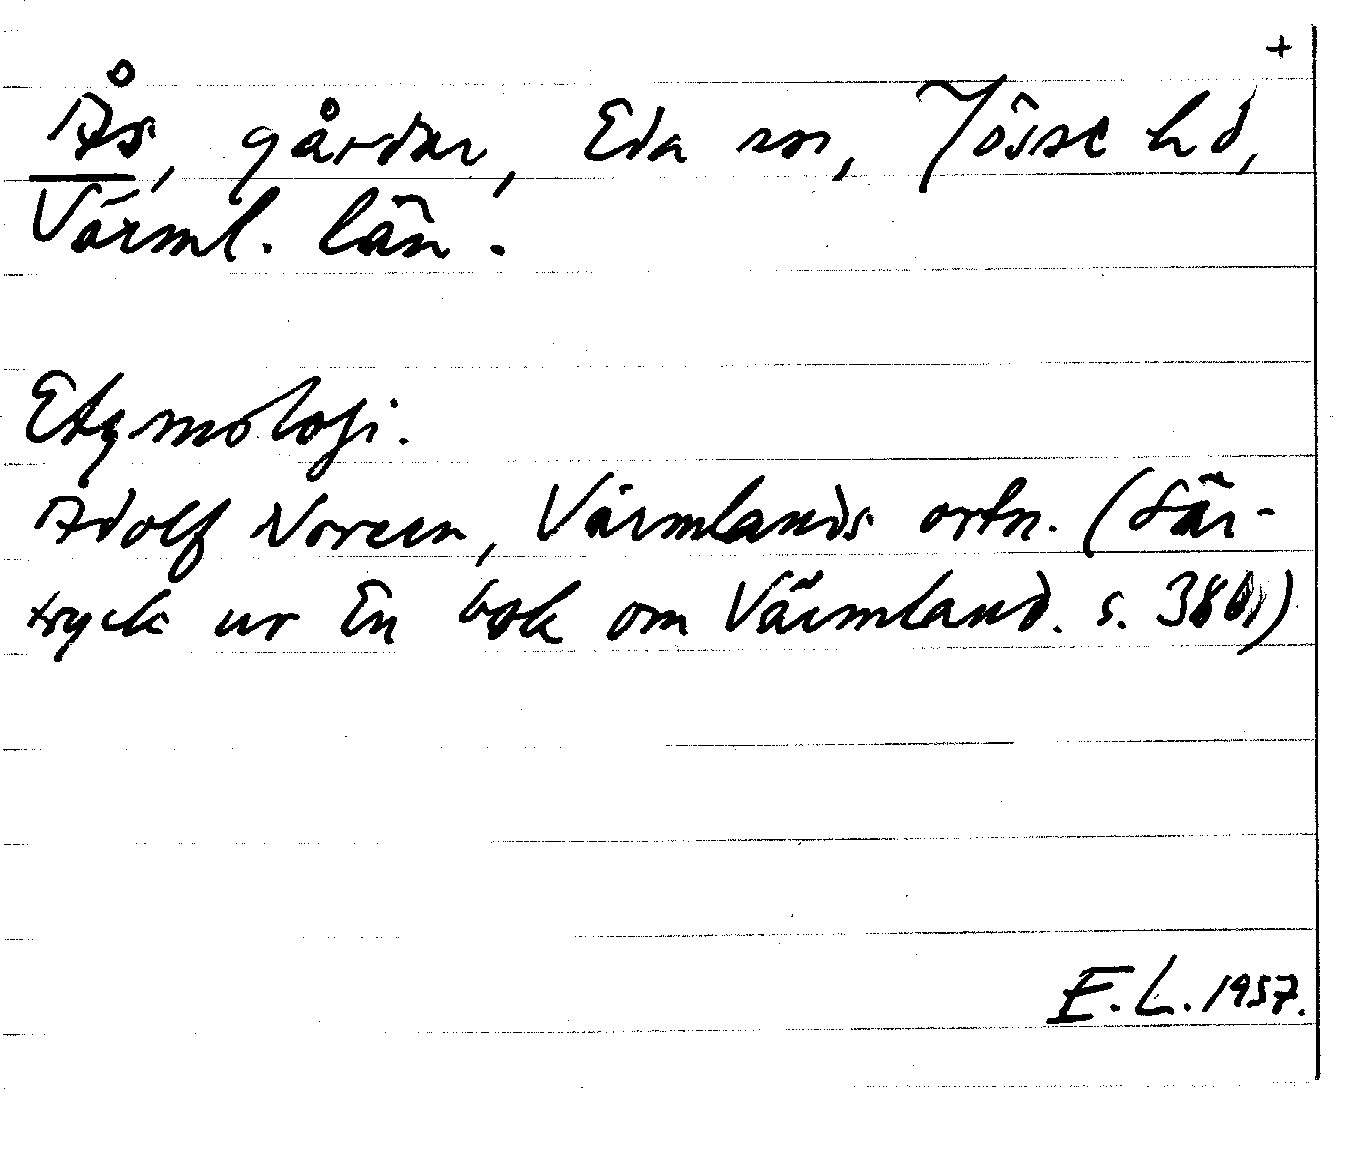 +
Ås, gårdar, Eda sn, Jösse hd,
Värml. län.
Etymologi.
Adolf Noreen, Värmlands ortn. (Sär-
tryck ur En bok om Värmland. s.
E. L. 1957.